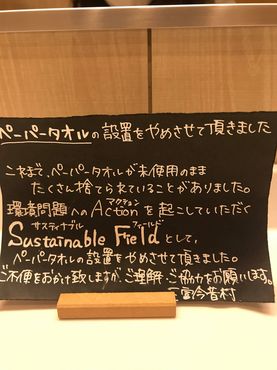 ペーパータオルの設置をやめさせて頂きました
これまで、ペーパータオルが未使用のまま
たくさん捨てられていることがありました。
環境問題へのActionを起こしていただく
アクション
サスティナブル フィールド
Sustainable Fieldとして、
ペーパータオルの設置をやめさせて頂きました。
ご不便をおかけ致しますが、ご理解・ご協力をお願いします。
今昔村